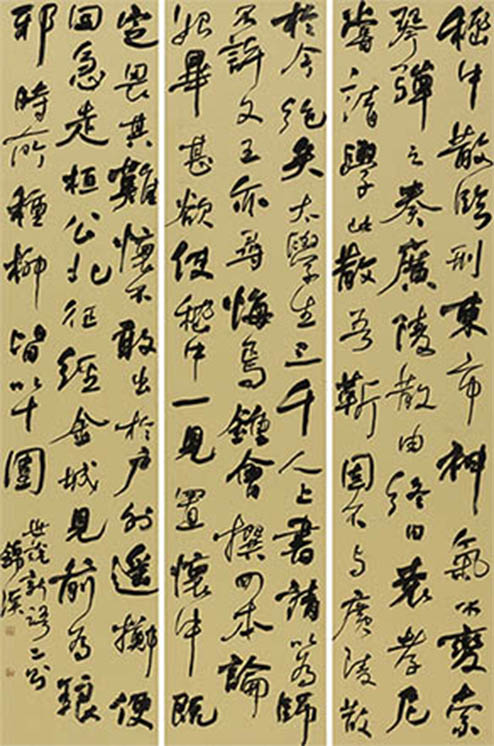 嵇中散臨刑東市神氣不變索
琴彈之奏廣陵散曲終曰袁孝尼
嘗請學此散吾靳固不与廣陵散
於今絕矣太學生三千人上書請以為師
不許文王亦尋悔焉鍾會撰四本論
始畢甚欲使嵇中一見置懷中既
定畏其難懷不敢出於戶外遙擲便
回急走桓公北征經金城見前為琅
邪時所種柳皆以十圍
世說新語二則